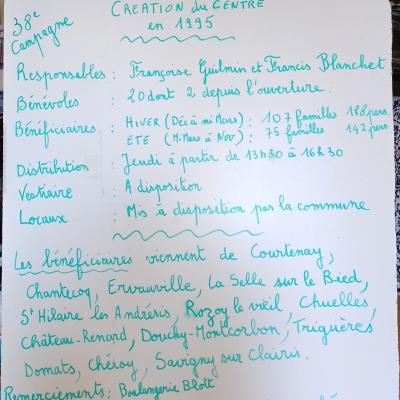 38e Campagne
CREATION du CENTRE
en 1995
Responsables : Françoise Guilmin et Francis Blanchet
Bénévoles : 20 dont 2 depuis l'ouverture.
Bénéficiaires : HIVER (Déc à mi Mars) : 107 familles 188 pers.
ETE (Mi Mars à Nov) : 75 familles 142 pers.
Distribution : Jeudi à partir de 13h30 à 16h30
Vestiaire : A disposition
Locaux : Mis à disposition par la commune
Les bénéficiaires viennent de Courtenay,
Chantecoq, Ervauville, La Selle sur le Bied,
St Hilaire les Andrésis, Rozoy le vieil, Chuelles,
Château-Renard, Douchy-Montcorbon, Triguères,
Domats, Chéroy, Savigny sur Clairis.
Remerciements : Boulangerie Blott